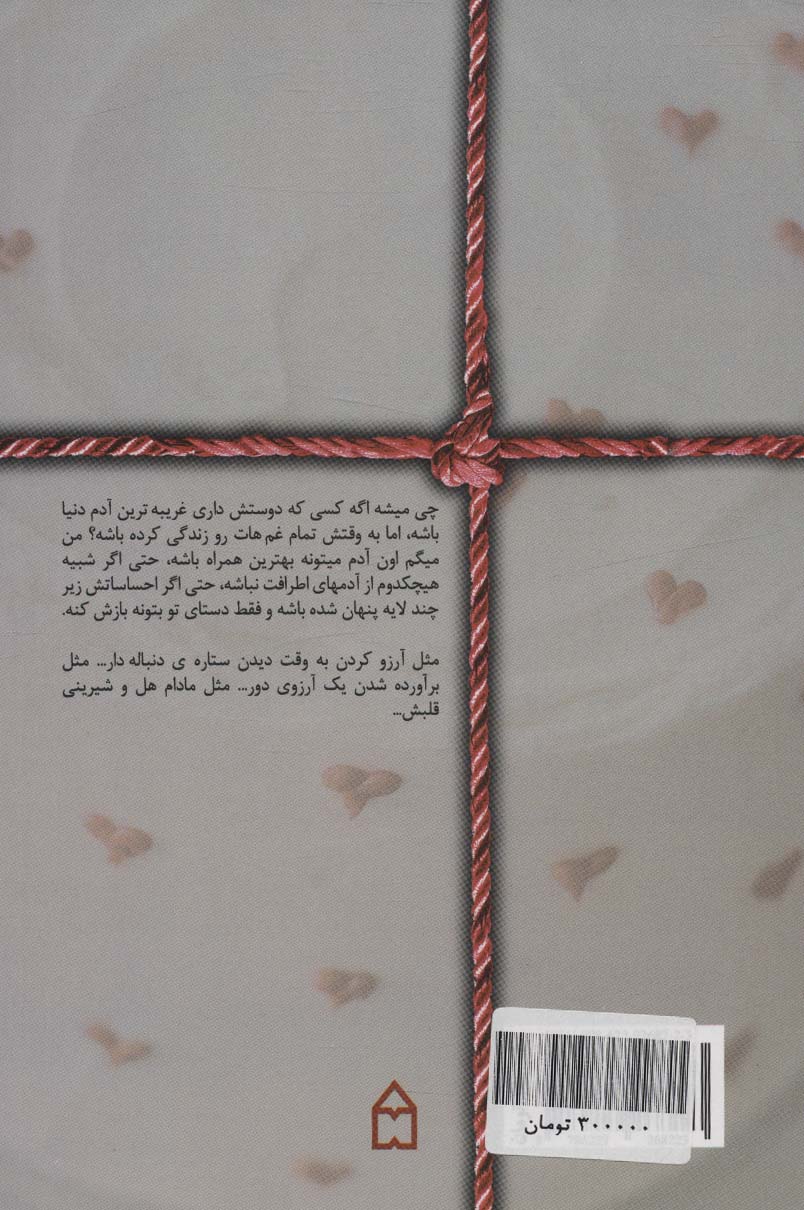 چی میشه اگه کسی که دوستش داری غریبه ترین آدم دنیا
باشه، اما به وقتش تمام غم هات رو زندگی کرده باشه؟ من
میگم اون آدم میتونه بهترین همراه باشه، حتی اگر شبیه
هیچکدوم از آدمهای اطرافت نباشه، حتی اگر احساساتش زیر
چند لایه پنهان شده باشه و فقط دستای تو بتونه بازش کنه.
مثل آرزو کردن به وقت دیدن ستاره ی دنباله دار... مثل
برآورده شدن یک آرزوی دور... مثل مادام هل و شیرینی
قلبش...
۳۰۰۰۰۰ تومان